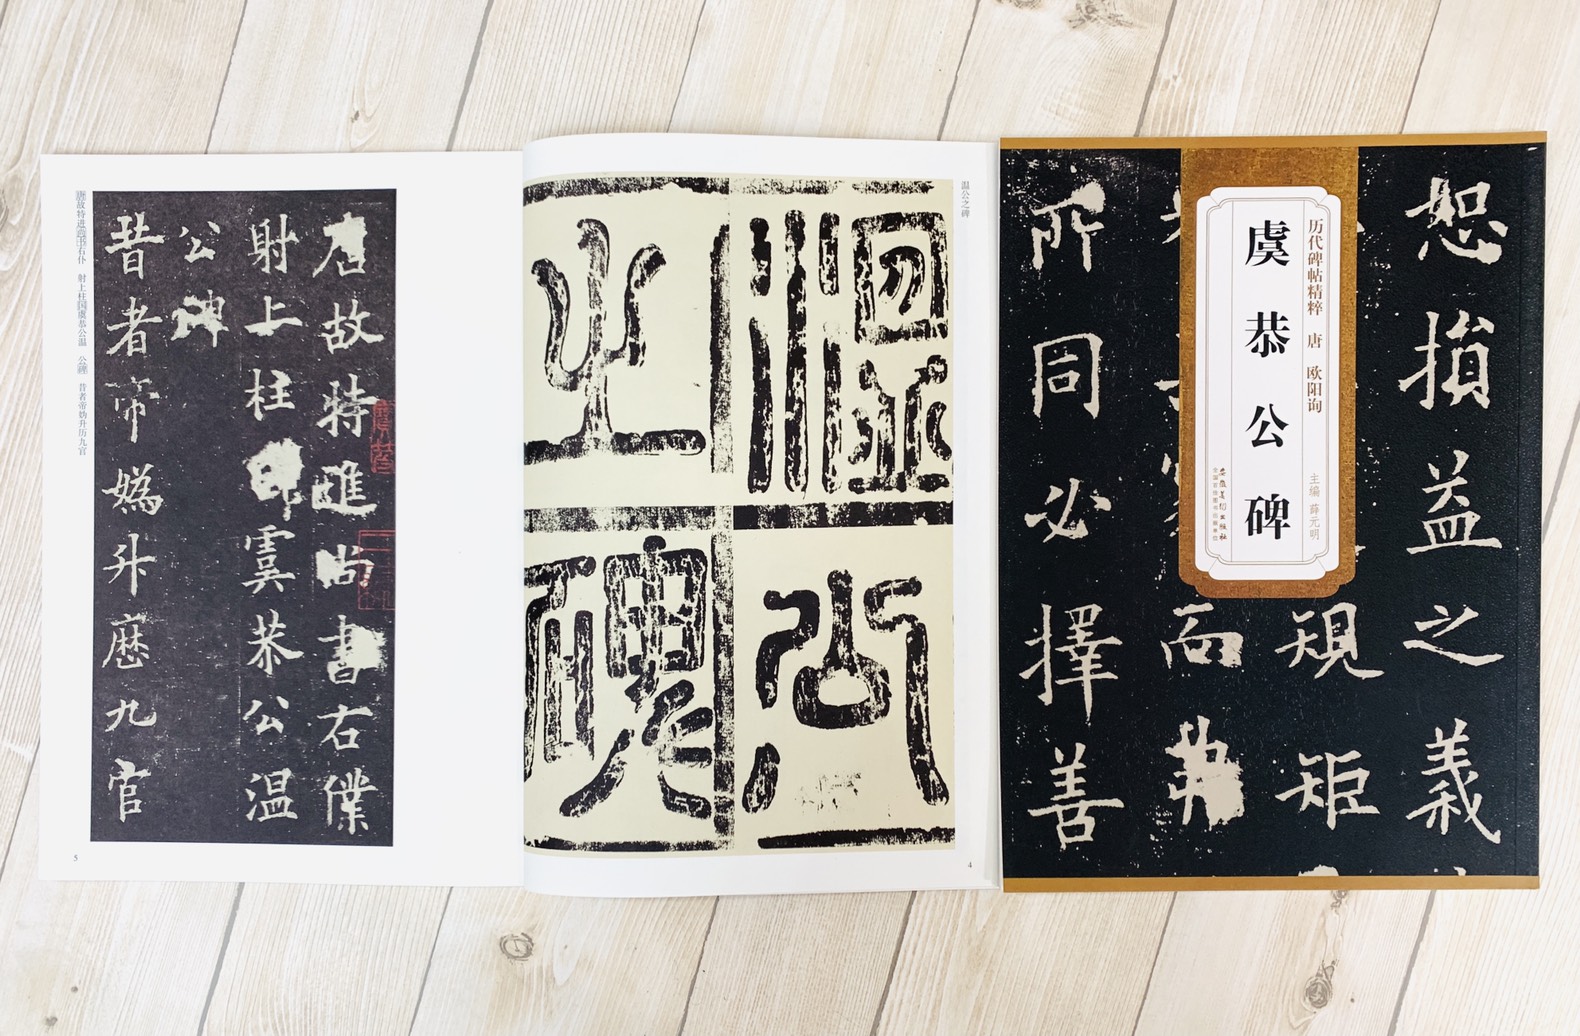 恕損益之義
規矩
而
所同必擇善
历代碑帖精粹 唐 欧阳询
虞恭公碑
主编 薛元明
安徽美术出版社
全国百佳图书出版单位
温公之碑
温公
之碑
4
唐故特進尚書右僕
射上柱國虞恭公温
公碑
昔者帝媯升歷九官
唐故特进尚书右仆 射上柱国虞恭公温 公碑 昔者帝妫升历九官
5